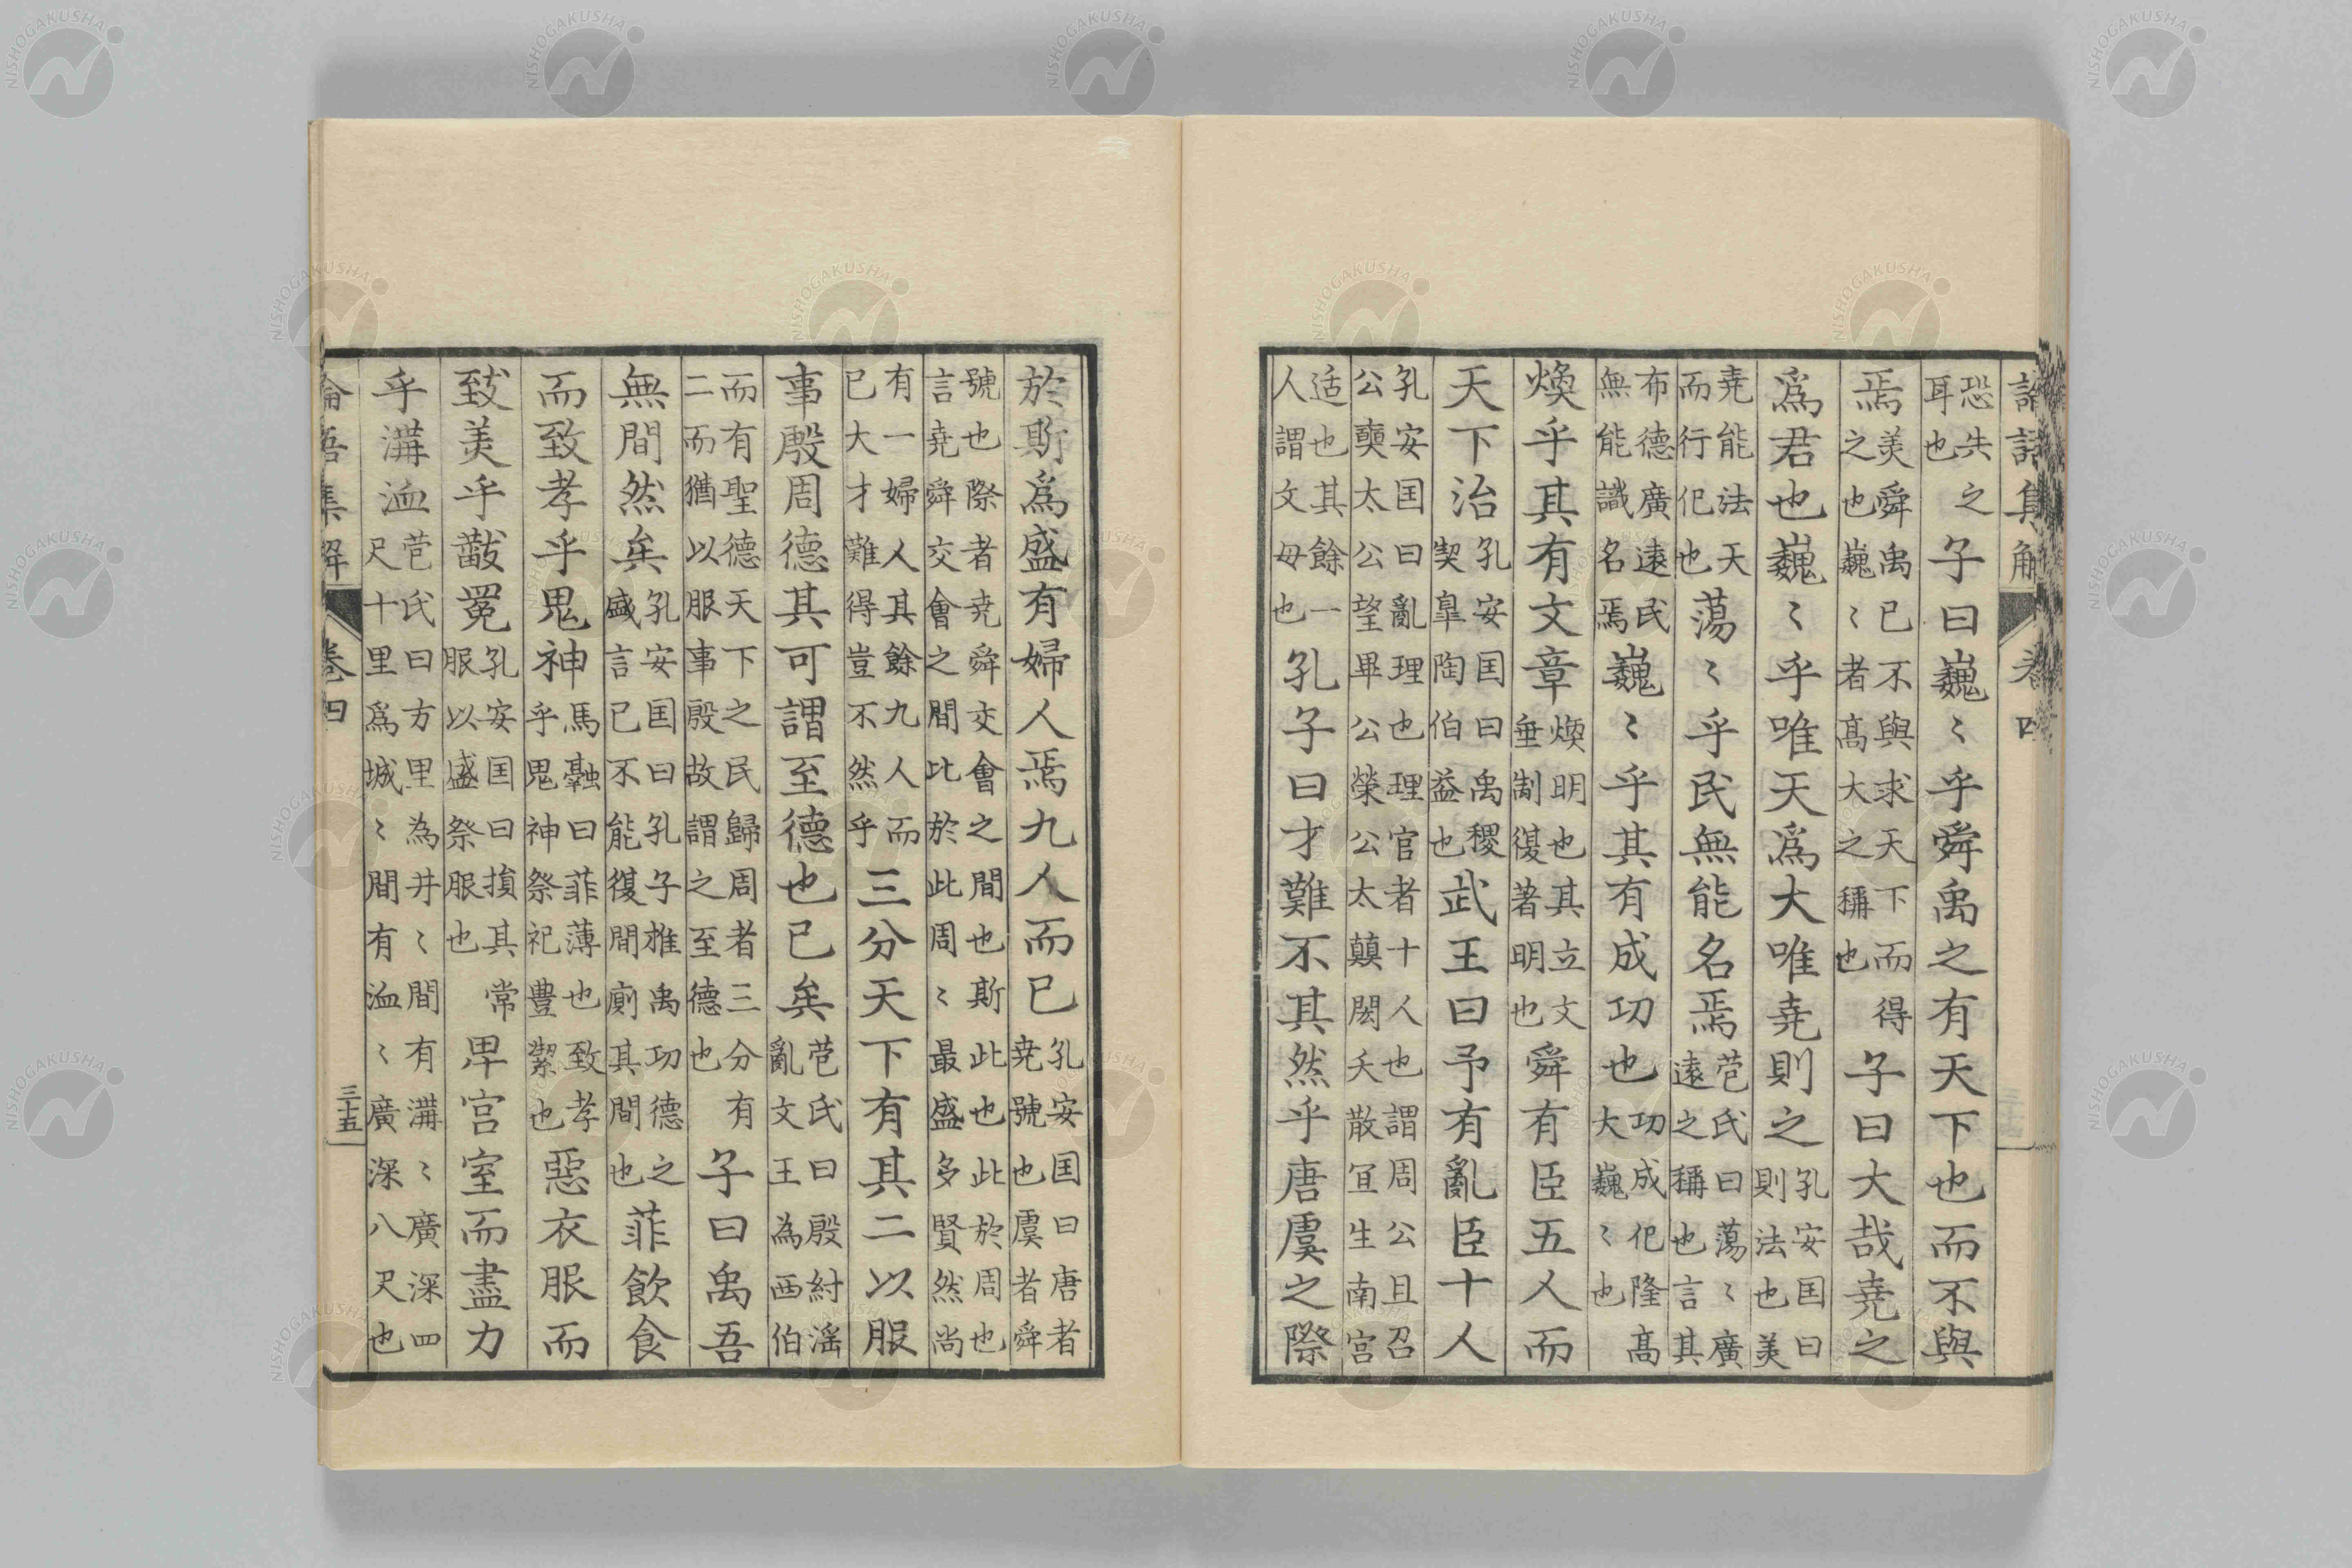 論語集解 卷四
恐失之耳也子曰巍〻乎舜禹之有天下也而不與
焉美舜禹已不與求天下而得之也巍〻者髙大之稱也子曰大哉尭之
爲君也巍〻乎唯天爲大唯尭則之孔安囯曰則法也美
尭能法天而行化也蕩〻乎民無能名焉苞氏曰蕩〻廣遠之稱也言其
布德廣遠民無能識名焉巍〻乎其有成功也功成化隆髙大巍〻也
煥乎其有文章煥明也其立文垂制復著明也舜有臣五人而
天下治孔安囯曰禹稷契臯陶伯益也武王曰予有亂臣十人
孔安囯曰亂理也理官者十人也謂周公旦召公奭太公望畢公榮公太顛閎夭散冝生南宮
适也其餘一人謂文母也孔子曰才難不其然乎唐虞之際
於斯爲盛有婦人焉九人而已孔安囯曰唐者尭號也虞者舜
號也際者尭舜交會之間也斯此也此於周也言尭舜交會之間比於此周〻最盛多賢然尚
有一婦人其餘九人而已大才難得豈不然乎三分天下有其二以服
事殷周德其可謂至德也已矣苞氏曰殷紂滛亂文王為西伯
而有聖德天下之民歸周者三分有二而猶以服事殷故謂之至德也子曰禹吾
無間然矣孔安囯曰孔子推禹功德之盛言已不能復間廁其間也菲飲食
而致孝乎鬼神馬融曰菲薄也致孝乎鬼神祭祀豊絜也惡衣服而
致美乎黻冕孔安囯曰損其常服以盛祭服也卑宮室而盡力
乎溝洫苞氏曰方里為井〻間有溝〻廣深四尺十里爲城〻間有洫〻廣深八尺也
論語集解 卷四 三十五
NISHOGAKUSHA